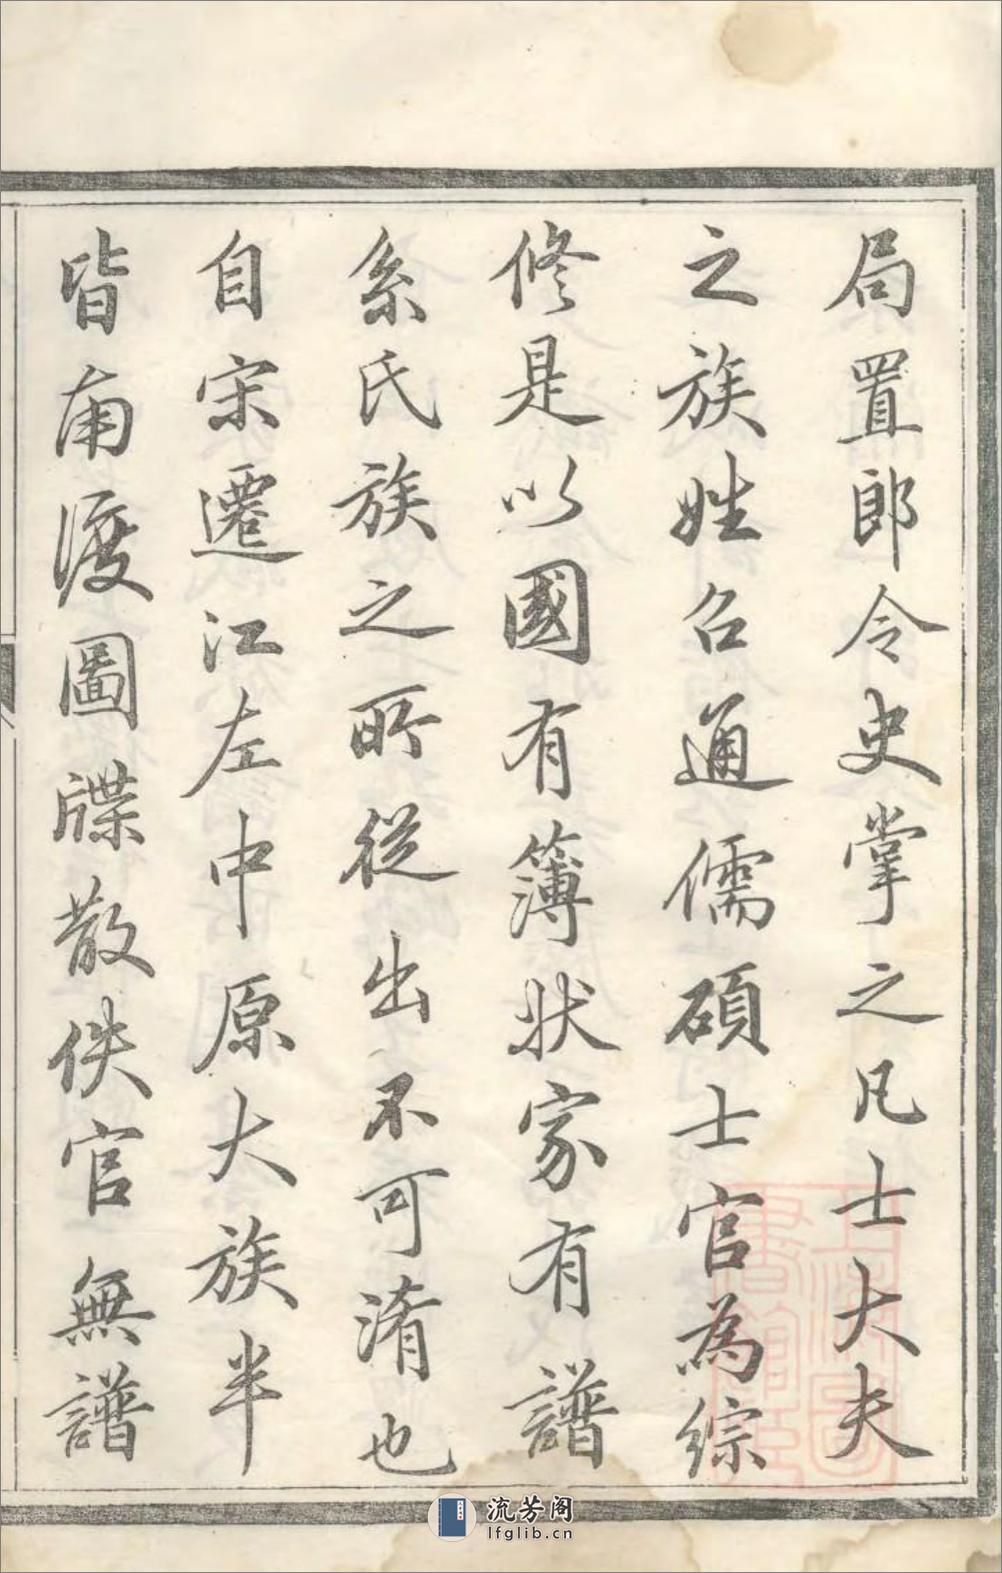 局置郎令史掌之凡士大夫
之族姓召通儒碩士官為綜
修是以國有簿狀家有譜
系氏族之所從出不可淆也
自宋遷江左中原大族半
皆南渡圖牒散佚官無譜
上海圖書館藏
流芳阁
lfglib.cn